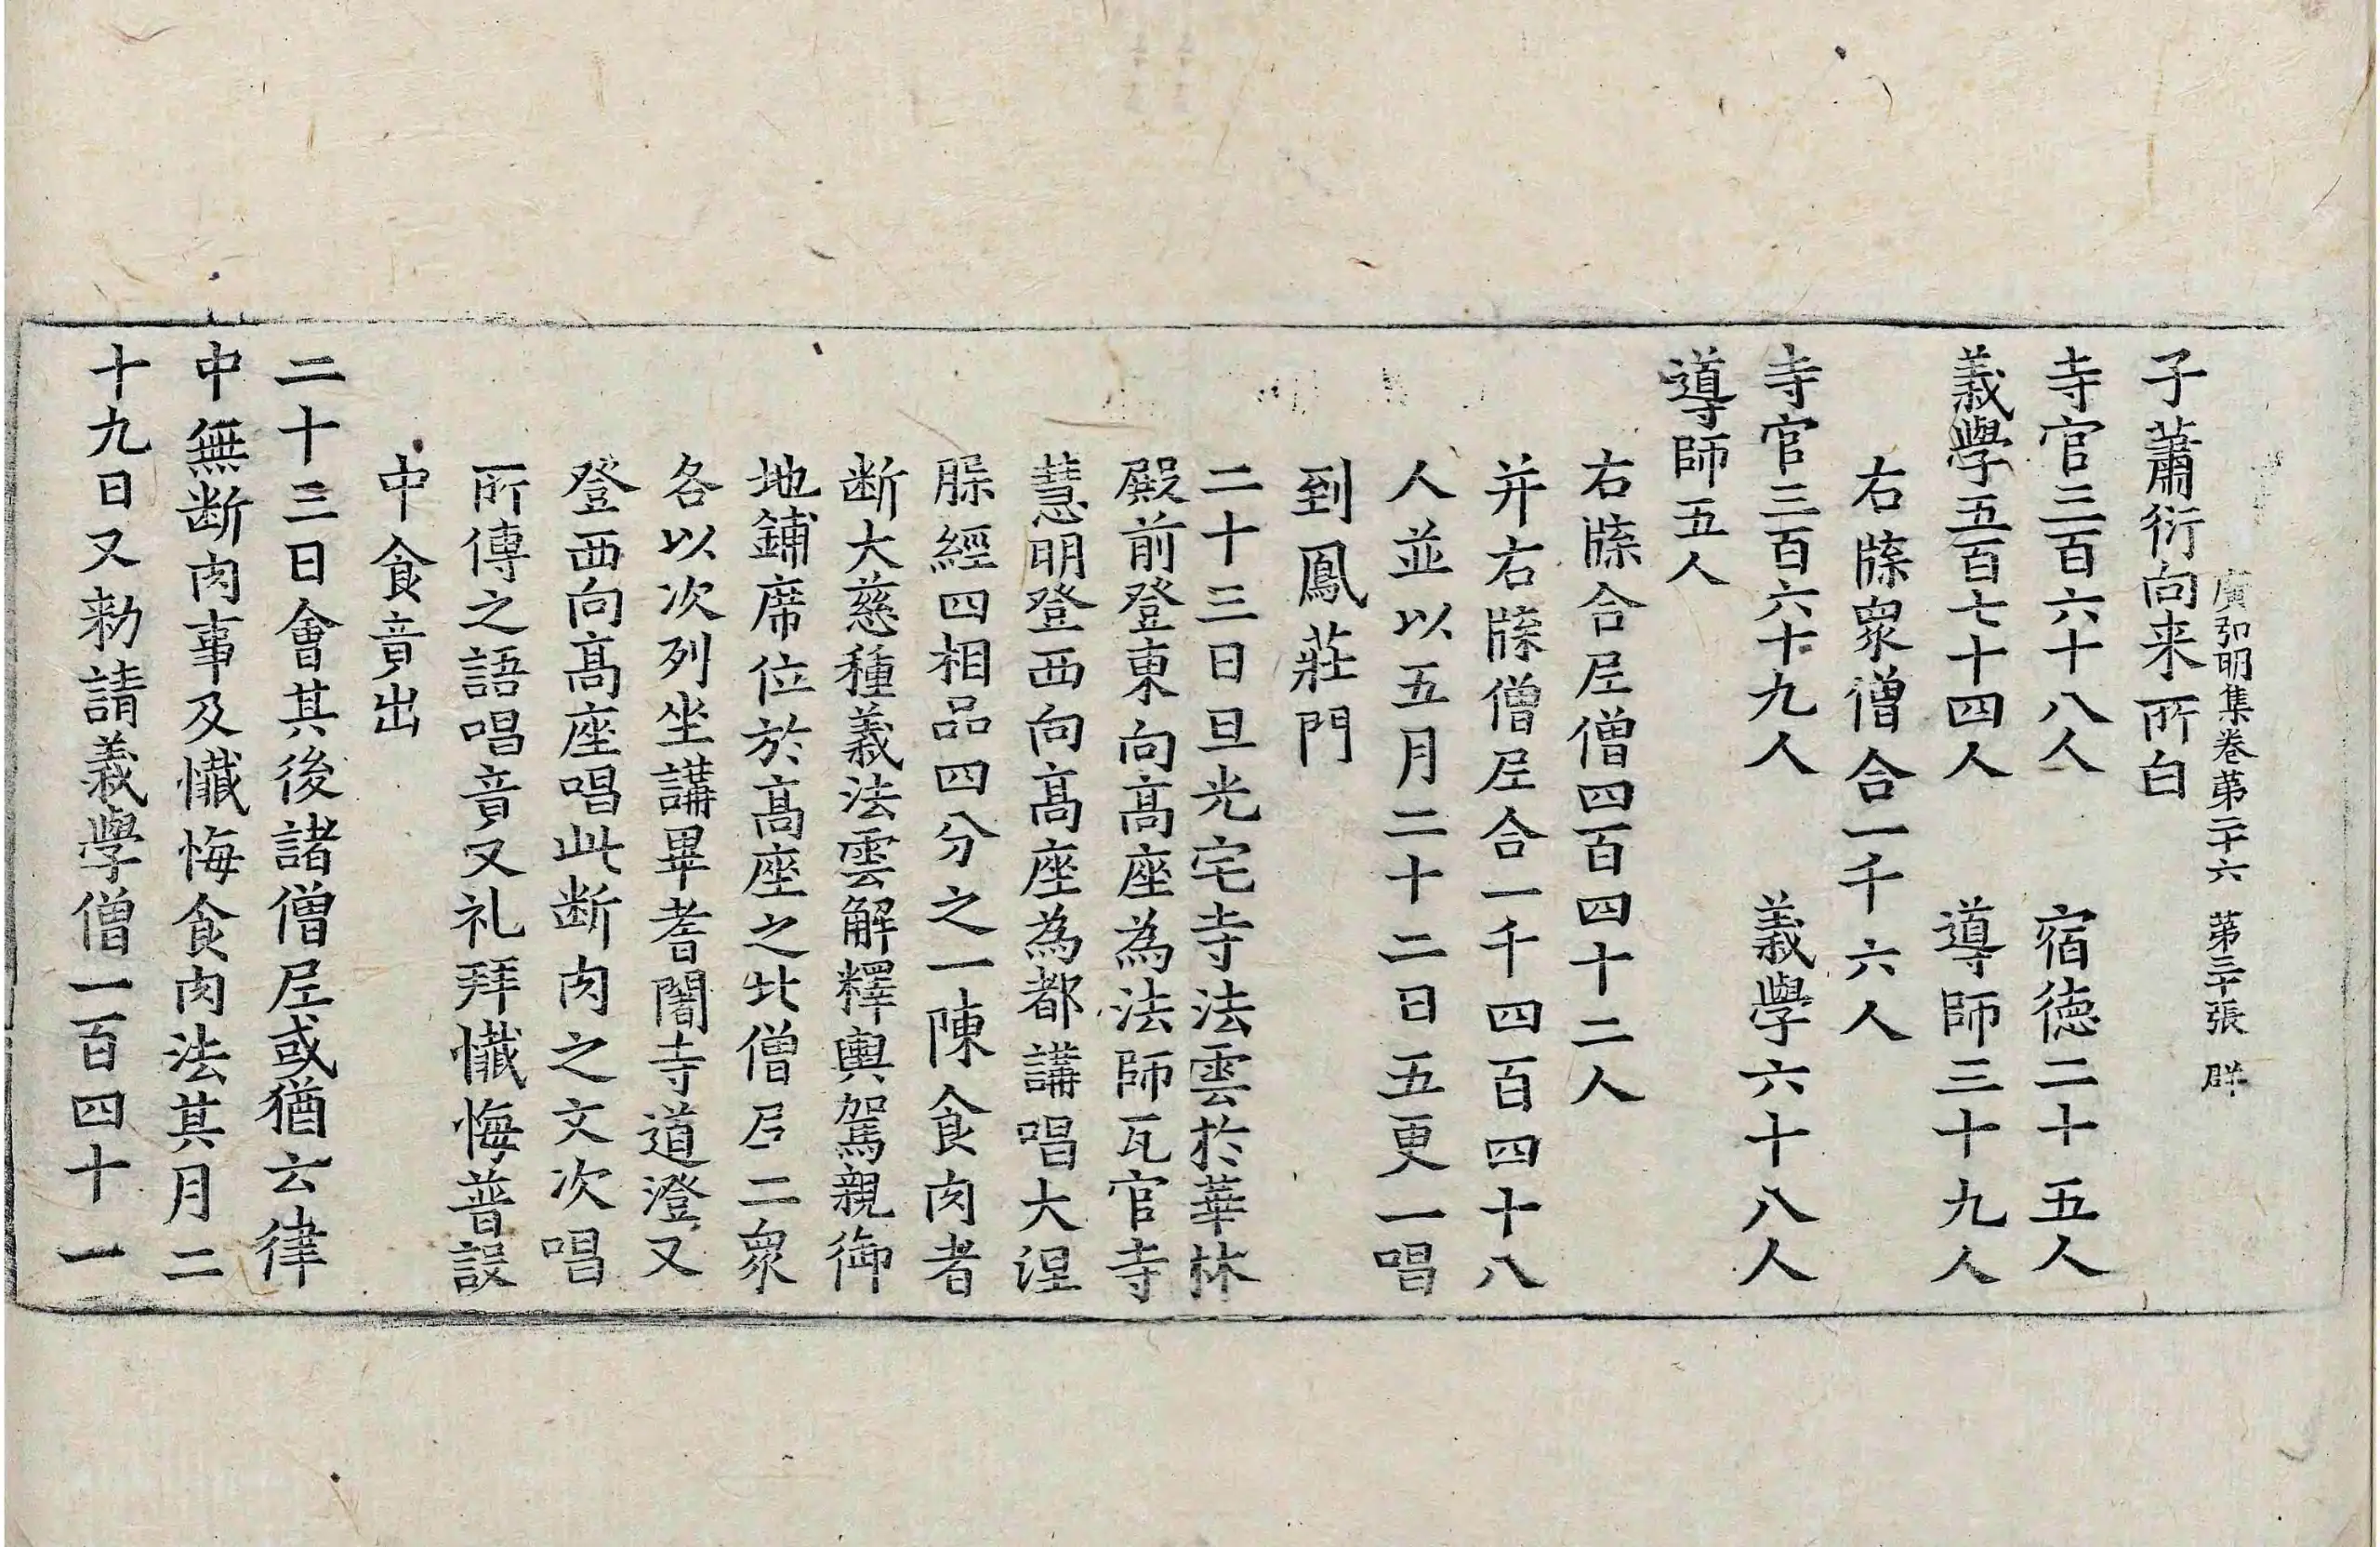 廣弘明集卷第二十六 第三十張 群
子蕭衍向来所白
寺官三百六十八人 宿德二十五人
義學五百七十四人 導師三十九人
右牒衆僧合一千六人
寺官三百六十九人 義學六十八人
導師五人
右牒合尼僧四百四十二人
并右牒僧尼合一千四百四十八
人並以五月二十二日五更一唱
到鳳莊門
二十三日旦光宅寺法雲於華林
殿前登東向髙座為法師瓦官寺
慧明登西向髙座為都講唱大涅
槃經四相品四分之一陳食肉者
断大慈種義法雲解釋輿駕親御
地鋪席位於髙座之北僧尼二衆
各以次列坐講畢耆闍寺道澄又
登西向髙座唱此断肉之文次唱
所傳之語唱竟又礼拜懺悔普設
中食竟出
二十三日會其後諸僧尼或猶云律
中無断肉事及懺悔食肉法其月二
十九日又勑請義學僧一百四十一